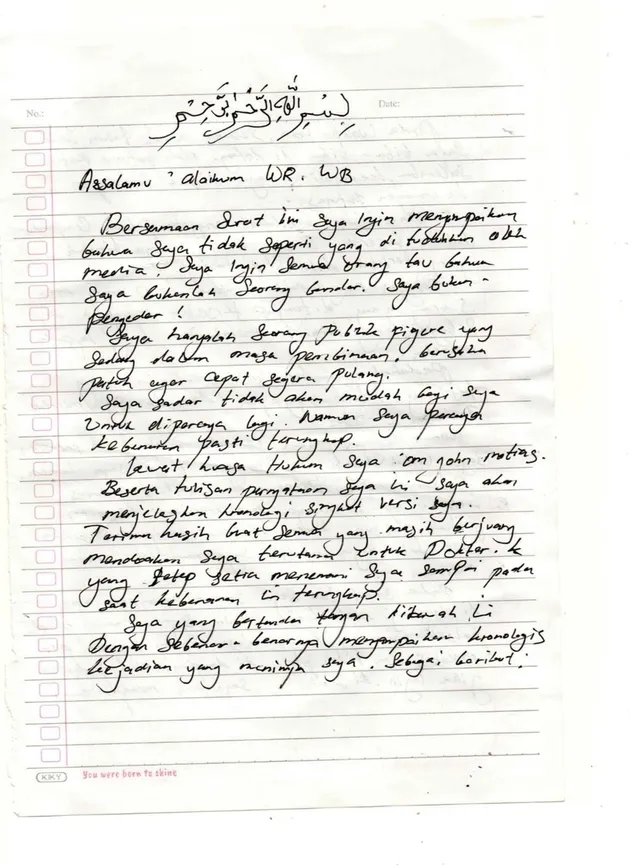 بِسْمِ اللَّهِ الرَّحْمٰنِ الرَّحِيْمِ
No.:
Date:
Assalamu 'alaikum WR. WB
Bersamaan Surat ini Saya Ingin menyampaikan
bahwa Saya tidak Seperti yang di tuduhkan oleh
media. Saya Ingin Semua orang tau bahwa
Saya bukanlah Seorang bandar. Saya bukan -
Pengedar!
Saya hanyalah Seorang Publik figure yang
Sedang dalam masa pembinaan. berusaha
patuh agar cepat Segera pulang.
Saya Sadar tidak akan mudah bagi Saya
Untuk dipercaya lagi. Namun Saya percaya
kebenaran pasti terungkap.
Lewat kuasa Hukum Saya om john
Beserta tulisan pernyataan Saya ini Saya akan
menjelaskan kronologi Singkat Versi Saya.
Terima kasih buat Semua yang masih berjuang
mendoakan Saya terutama Untuk Dokter. k
yang tetap Setia menemani Saya Sampai pada
Saat kebenaran ini terungkap.
Saya yang bertanda tangan dibawah ini
Dengan Sebenar - benarnya menyampaikan kronologis
kejadian yang menimpa Saya. Sebagai berikut:
KIKY
You were born to shine